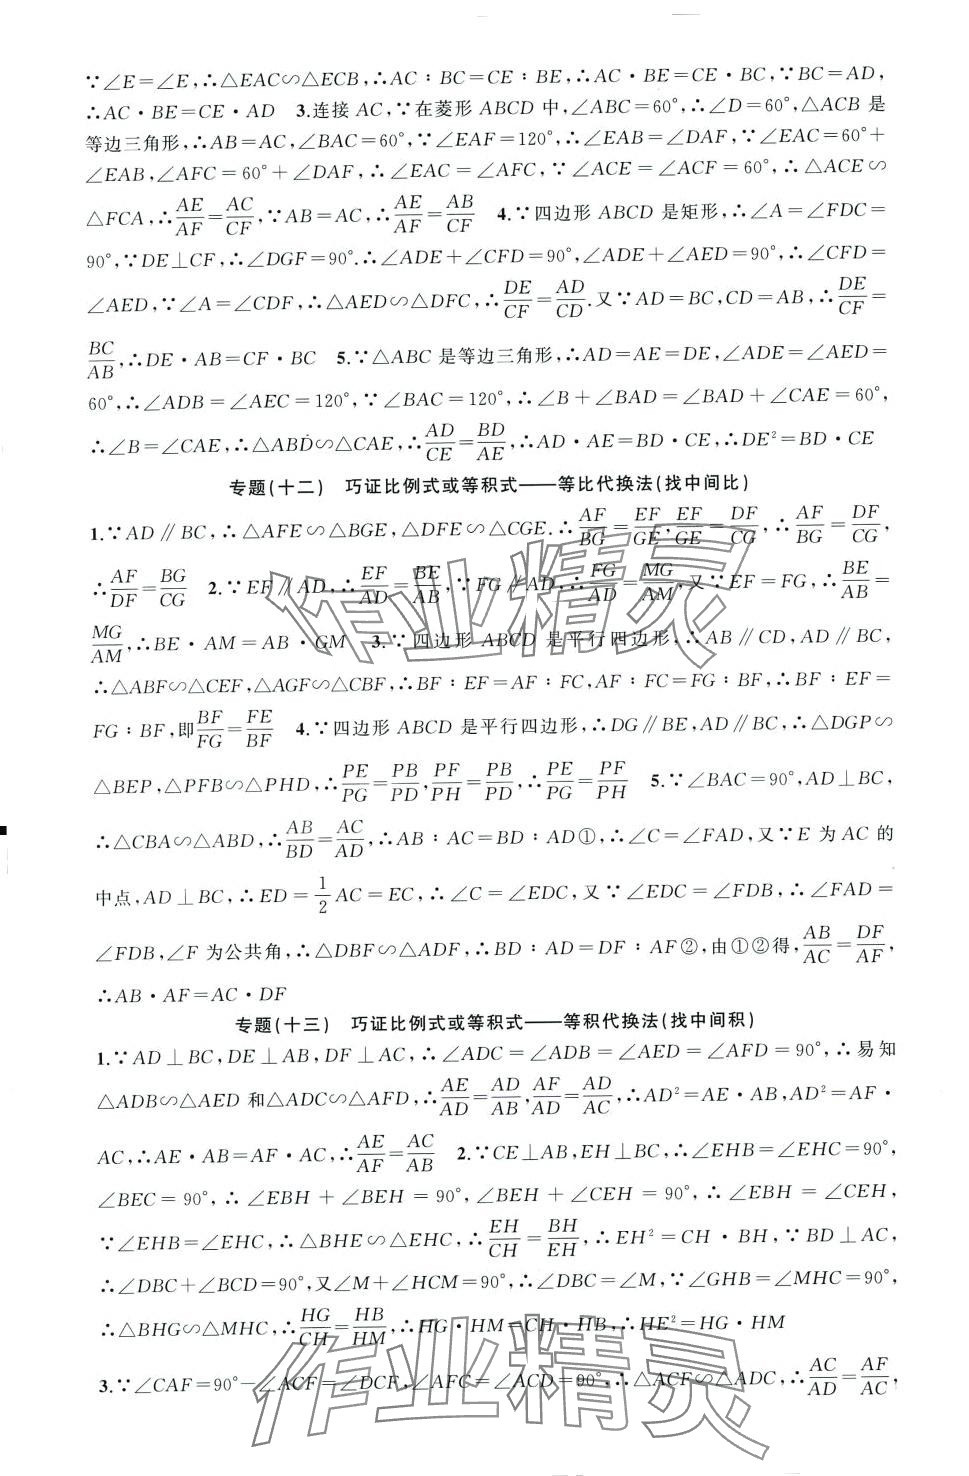 ∵∠E=∠E,∴△EAC∽△ECB,∴AC∶BC=CE∶BE,∴AC·BE=CE·BC,∵BC=AD,
∴AC·BE=CE·AD 3.连接 AC,∵在菱形 ABCD 中,∠ABC=60°,∴∠D=60°,△ACB 是
等边三角形,∴AB=AC,∠BAC=60°,∵∠EAF=120°,∴∠EAB=∠DAF,∵∠EAC=60°+
∠EAB,∠AFC=60°+∠DAF,∴∠EAC=∠AFC,∵∠ACE=∠ACF=60°,∴△ACE∽
△FCA,∴AE/AF=AC/CF,∵AB=AC,∴AE/AF=AB/CF 4.∵四边形 ABCD 是矩形,∴∠A=∠FDC=
90°,∵DE⊥CF,∴∠DGF=90°.∴∠ADE+∠CFD=90°,∠ADE+∠AED=90°,∴∠CFD=
∠AED,∵∠A=∠CDF,∴△AED∽△DFC,∴DE/CF=AD/CD.又∵AD=BC,CD=AB,∴DE/CF=
BC/AB,∴DE·AB=CF·BC 5.∵△ABC 是等边三角形,∴AD=AE=DE,∠ADE=∠AED=
60°,∴∠ADB=∠AEC=120°,∵∠BAC=120°,∴∠B+∠BAD=∠BAD+∠CAE=60°,
∴∠B=∠CAE,∴△ABD∽△CAE,∴AD/CE=BD/AE,∴AD·AE=BD·CE,∴DE²=BD·CE
专题(十二) 巧证比例式或等积式——等比代换法(找中间比)
1.∵AD∥BC,∴△AFE∽△BGE,△DFE∽△CGE.∴AF/BG=EF/GE,EF/GE=DF/CG,∴AF/BG=DF/CG,
∴AF/DF=BG/CG 2.∵EF∥AD,∴EF/AD=BE/AB,∵FG∥AD,∴FG/AD=MG/AM,又∵EF=FG,∴BE/AB=
MG/AM,∴BE·AM=AB·GM 3.∵四边形 ABCD 是平行四边形,∴AB∥CD,AD∥BC,
∴△ABF∽△CEF,△AGF∽△CBF,∴BF∶EF=AF∶FC,AF∶FC=FG∶BF,∴BF∶EF=
FG∶BF,即BF/FG=FE/BF 4.∵四边形 ABCD 是平行四边形,∴DG∥BE,AD∥BC,∴△DGP∽
△BEP,△PFB∽△PHD,∴PE/PG=PB/PD,PF/PH=PB/PD,∴PE/PG=PF/PH 5.∵∠BAC=90°,AD⊥BC,
∴△CBA∽△ABD,∴AB/BD=AC/AD,∴AB∶AC=BD∶AD①,∴∠C=∠FAD,又∵E 为 AC 的
中点,AD⊥BC,∴ED=1/2AC=EC,∴∠C=∠EDC,又∵∠EDC=∠FDB,∴∠FAD=
∠FDB,∠F 为公共角,∴△DBF∽△ADF,∴BD∶AD=DF∶AF②,由①②得,AB/AC=DF/AF,
∴AB·AF=AC·DF
专题(十三) 巧证比例式或等积式——等积代换法(找中间积)
1.∵AD⊥BC,DE⊥AB,DF⊥AC,∴∠ADC=∠ADB=∠AED=∠AFD=90°,∴易知
△ADB∽△AED 和△ADC∽△AFD,∴AE/AD=AD/AB,AF/AD=AD/AC,∴AD²=AE·AB,AD²=AF·
AC,∴AE·AB=AF·AC,∴AE/AF=AC/AB 2.∵CE⊥AB,EH⊥BC,∴∠EHB=∠EHC=90°,
∠BEC=90°,∴∠EBH+∠BEH=90°,∠BEH+∠CEH=90°,∴∠EBH=∠CEH,
∵∠EHB=∠EHC,∴△BHE∽△EHC,∴EH/CH=BH/EH,∴EH²=CH·BH,∵BD⊥AC,
∴∠DBC+∠BCD=90°,又∠M+∠HCM=90°,∴∠DBC=∠M,∵∠GHB=∠MHC=90°,
∴△BHG∽△MHC,∴HG/CH=HB/HM,∴HG·HM=CH·HB,∴HE²=HG·HM
3.∵∠CAF=90°-∠ACF=∠DCF,∠AFC=∠ACD=90°,∴△ACF∽△ADC,∴AC/AD=AF/AC,
作业精灵
作业精灵